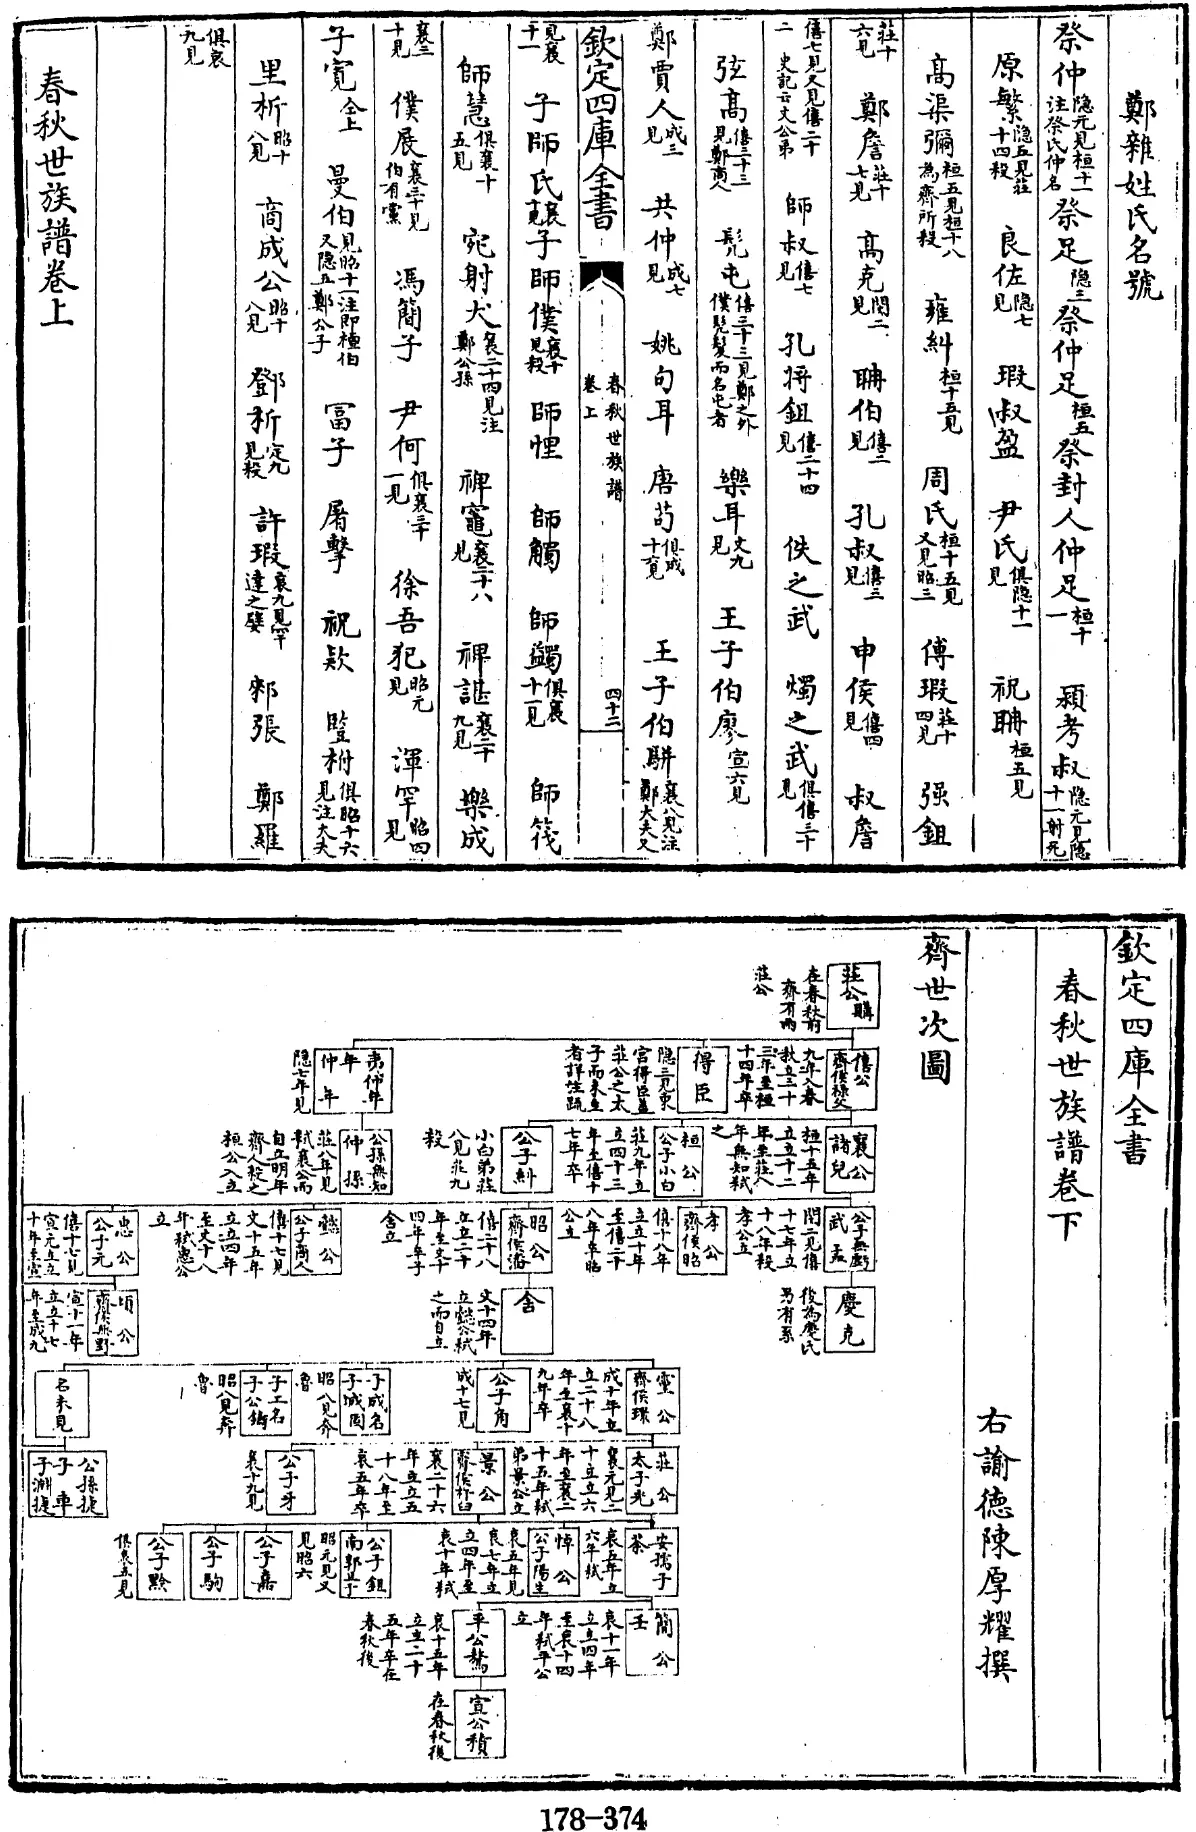 鄭雜姓氏名號
祭仲隠元見桓十一注祭氏仲名 祭足隠三 祭仲足桓五 祭封人仲足桓十一 潁考叔隠元見隠十一射死
原繁隠五見莊十四殺 良佐隠七見 瑕叔盈 尹氏俱隠十一見 祝聃桓五見
高渠彌桓五見桓十八為齊所殺 雍糾桓十五見 周氏桓十五見又見昭三 傅瑕莊十四見 强鉏
莊十六見 鄭詹莊十七見 高克閔二見 聃伯僖二見 孔叔僖三見 申侯僖四見 叔詹
僖七見又見僖二十二 史記云文公弟 師叔僖七見 孔將鉏僖二十四見 佚之武 燭之武俱僖三十見
弦高僖三十三見鄭商人 髡屯僖三十三見鄭之外僕髡髮而名屯者 樂耳文九見 王子伯廖宣六見
鄭賈人成三見 共仲成七見 姚句耳 唐苟俱成十六見 王子伯駢襄八見注鄭大夫又
欽定四庫全書 春秋世族譜 卷上 四十二
見襄十一 子師氏襄十見 子師僕襄十見殺 師悝 師觸 師蠲俱襄十一見 師筏
師慧俱襄十五見 宛射犬襄二十四見注鄭公孫 裨竈襄二十八見 裨諶襄二十九見 樂成
襄三十見 僕展襄三十見伯有黨 馮簡子 尹何俱襄三十一見 徐吾犯昭元見 渾罕昭四見
子寬仝上 曼伯見昭十一注即檀伯又隠五鄭公子 富子 屠擊 祝款 豎柎俱昭十六見注大夫
里析昭十八見 商成公昭十八見 鄧析定九見殺 許瑕哀九見罕達之嬖 郟張 鄭羅
俱哀九見
春秋世族譜卷上
欽定四庫全書
春秋世族譜卷下
右諭德陳厚耀撰
齊世次圖
莊公購 在春秋前齊有兩莊公
僖公齊侯祿父 九年入春秋立三十三年至桓十四年卒
得臣 隠三見東宮得臣蓋莊公之太子而未立者詳姓疏
夷仲年 年 仲年 隠七年見
襄公諸兒 桓十五年立立十二年至莊八年無知弒之
桓公公子小白 莊九年立立四十三年至僖十七年卒
公子糾 小白弟莊八見莊九殺
公孫無知 仲孫 莊八年見弒襄公而自立明年齊人殺之桓公入立
公子無虧 武孟 閔二見僖十七年立十八年殺孝公立
孝公齊侯昭 僖十八年立立十年至僖二十八年卒昭公立
昭公齊侯潘 僖二十八立立二十年至文十四年卒子舍立
懿公公子商人 僖十七見文十五年立立四年至文十八年弒惠公立
惠公公子元 僖十七見宣元立立十年至宣
慶克 後為慶氏另有系
舍 文十四年立懿公弒之而自立
頃公齊侯無野 宣十一年立立十七年至成九
靈公齊侯環 成十年立立二十八年至襄十九年卒
公子角 成十七見
子成名子城固 昭八見奔魯
子工名子公鑄 昭八見奔魯
名未見
莊公太子光 襄元見二十立立六年至襄二十五年弒弟景公立
景公齊侯杵臼 襄二十六年立立五十八年至哀五年卒
公子牙 襄十九見
公孫捷 子車 子淵捷
安孺子荼 哀五年立六年弒
悼公公子陽生 哀五年見哀七年立立四年至哀十年弒
公子鉏南郭且于 昭元見又見昭六
公子嘉
公子駒
公子黔 俱哀五見
簡公壬 哀十一年立立四年至哀十四年弒平公立
平公驁 哀十五年立立二十五年卒在春秋後
宣公積 在春秋後
178-374